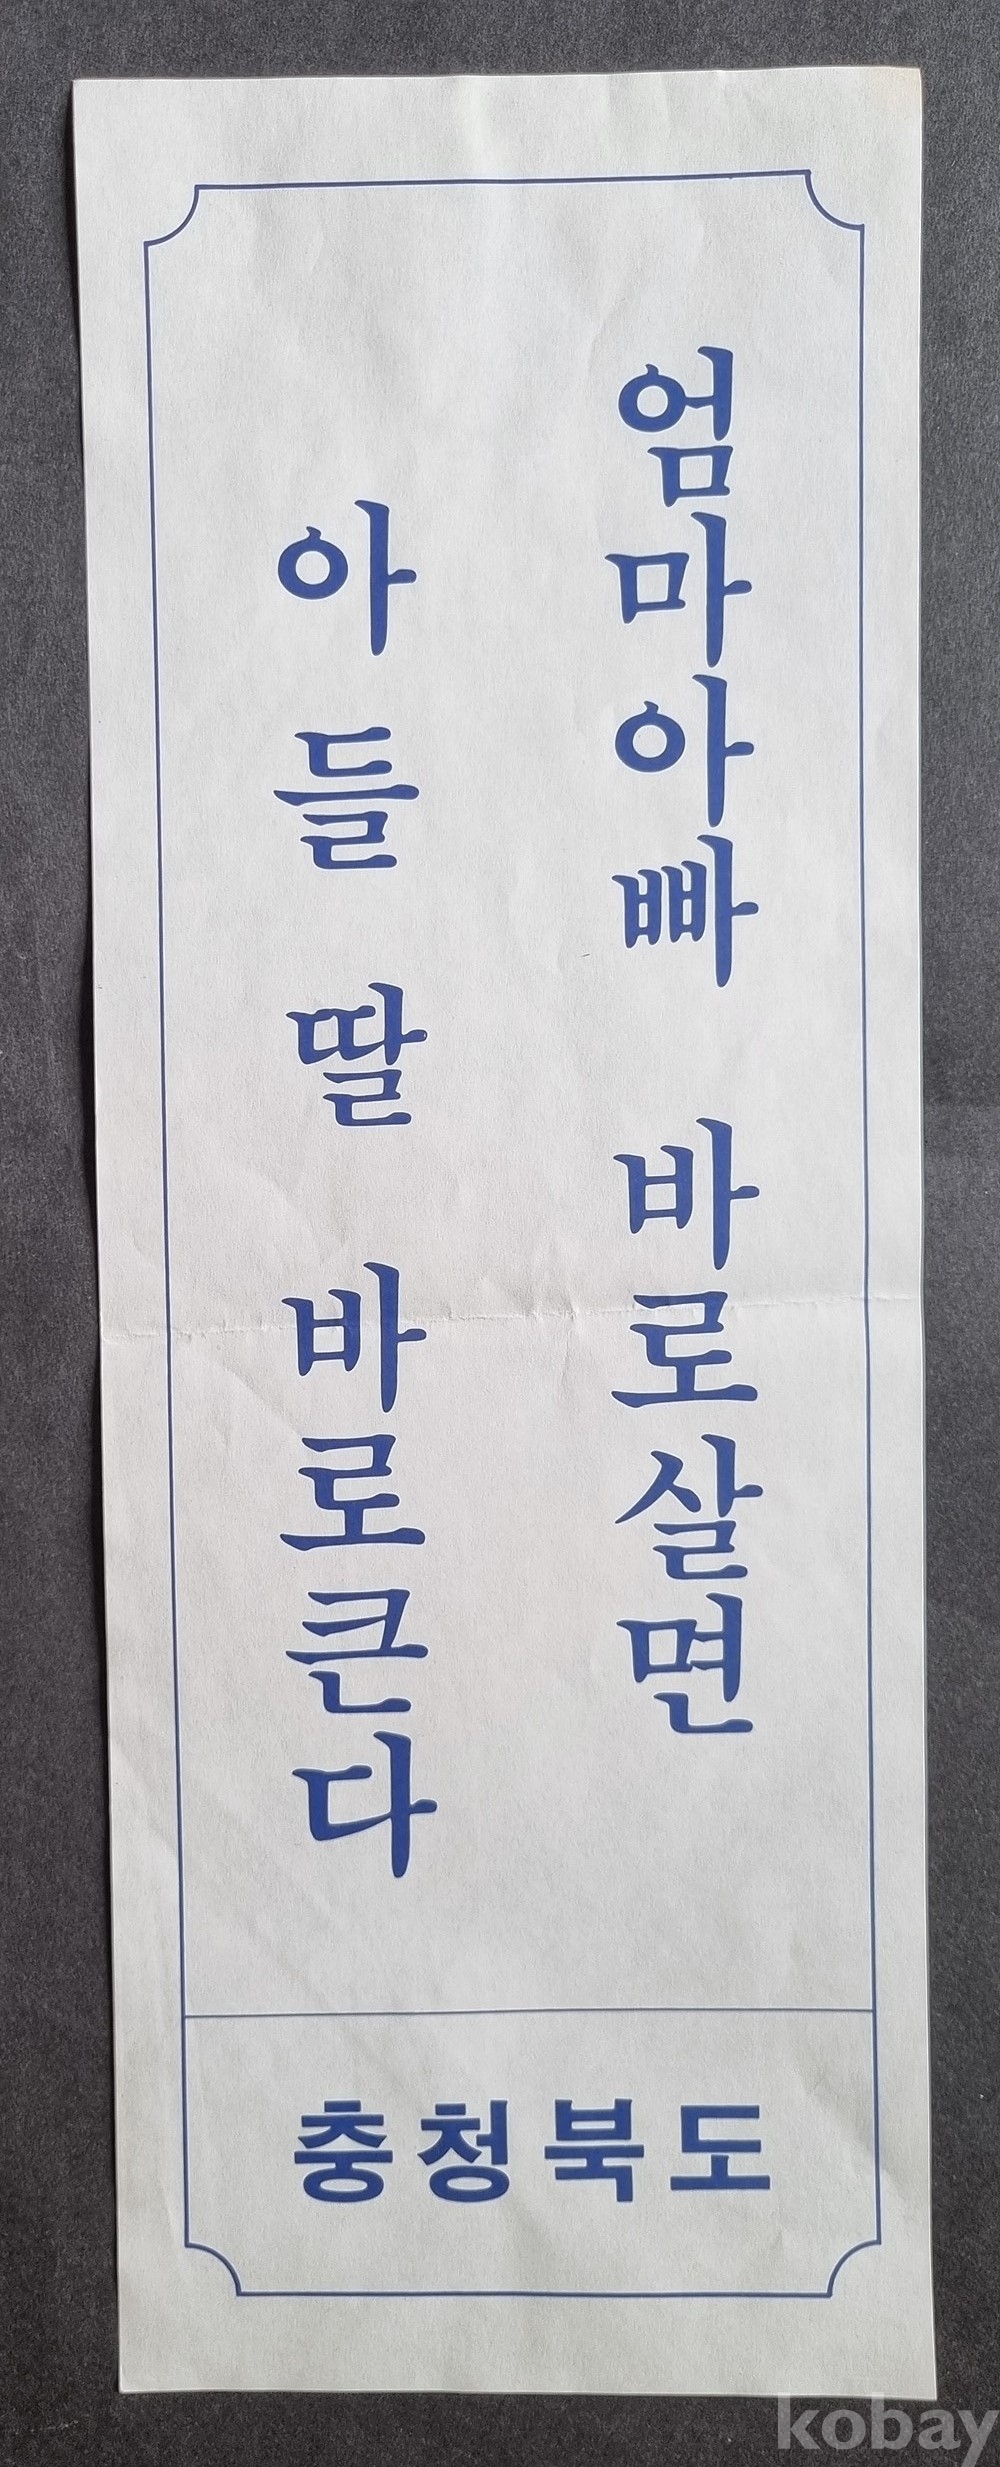 엄마아빠 바로살면
아들딸 바로큰다
충청북도
kobay